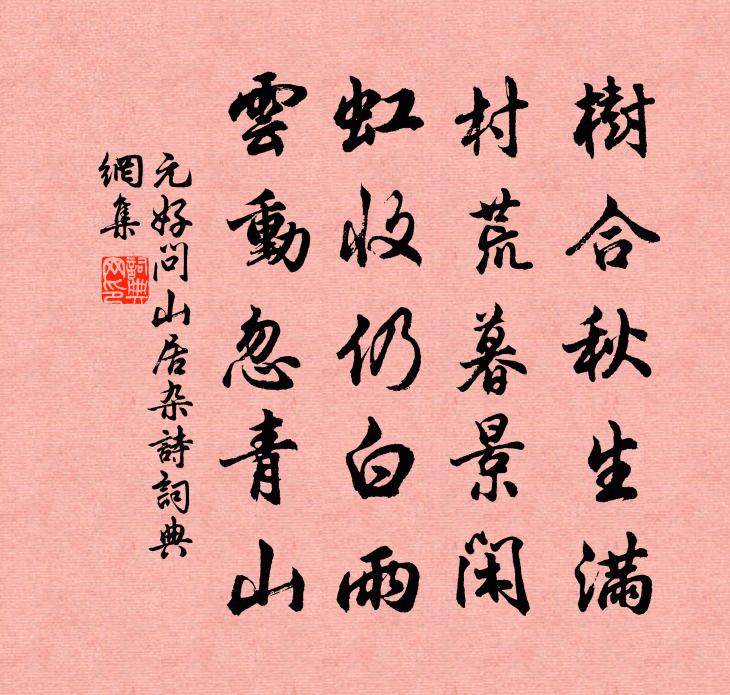 樹合秋生滿
村荒暮景閑
虹收仍白雨
雲動忽青山
元好问山居杂詩詞典
網集
詞典
网印